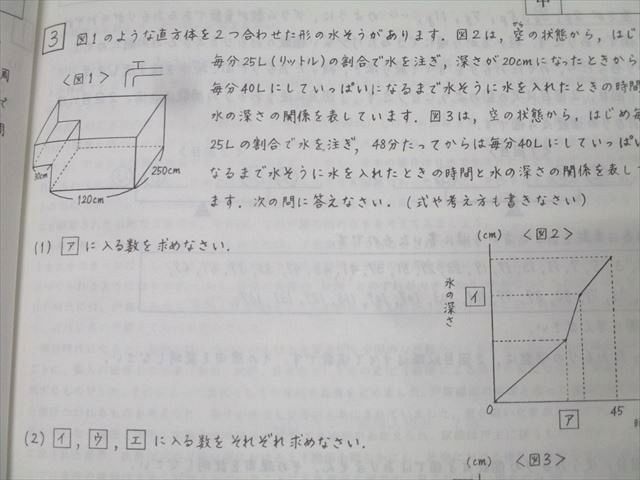 3 図1のような直方体を2つ合わせた形の水そうがあります. 図2は, 空の状態から, はじ
毎分25L(リットル)の割合で水を注ぎ, 深さが20cmになったときから
毎分40Lにしていっぱいになるまで水そうに水を入れたときの時間
水の深さの関係を表しています. 図3は, 空の状態から, はじめ毎
25Lの割合で水を注ぎ, 48分たってからは毎分40Lにしていっぱ
なるまで水そうに水を入れたときの時間と水の深さの関係を表して
ます. 次の問に答えなさい. (式や考え方も書きなさい)
<図1>
30cm
120cm
250cm
(1) ア に入る数を求めなさい.
(cm) <図2>
水の深さ
イ
0
ア
45
(2) イ, ウ, エ に入る数をそれぞれ求めなさい.
(cm) <図3>